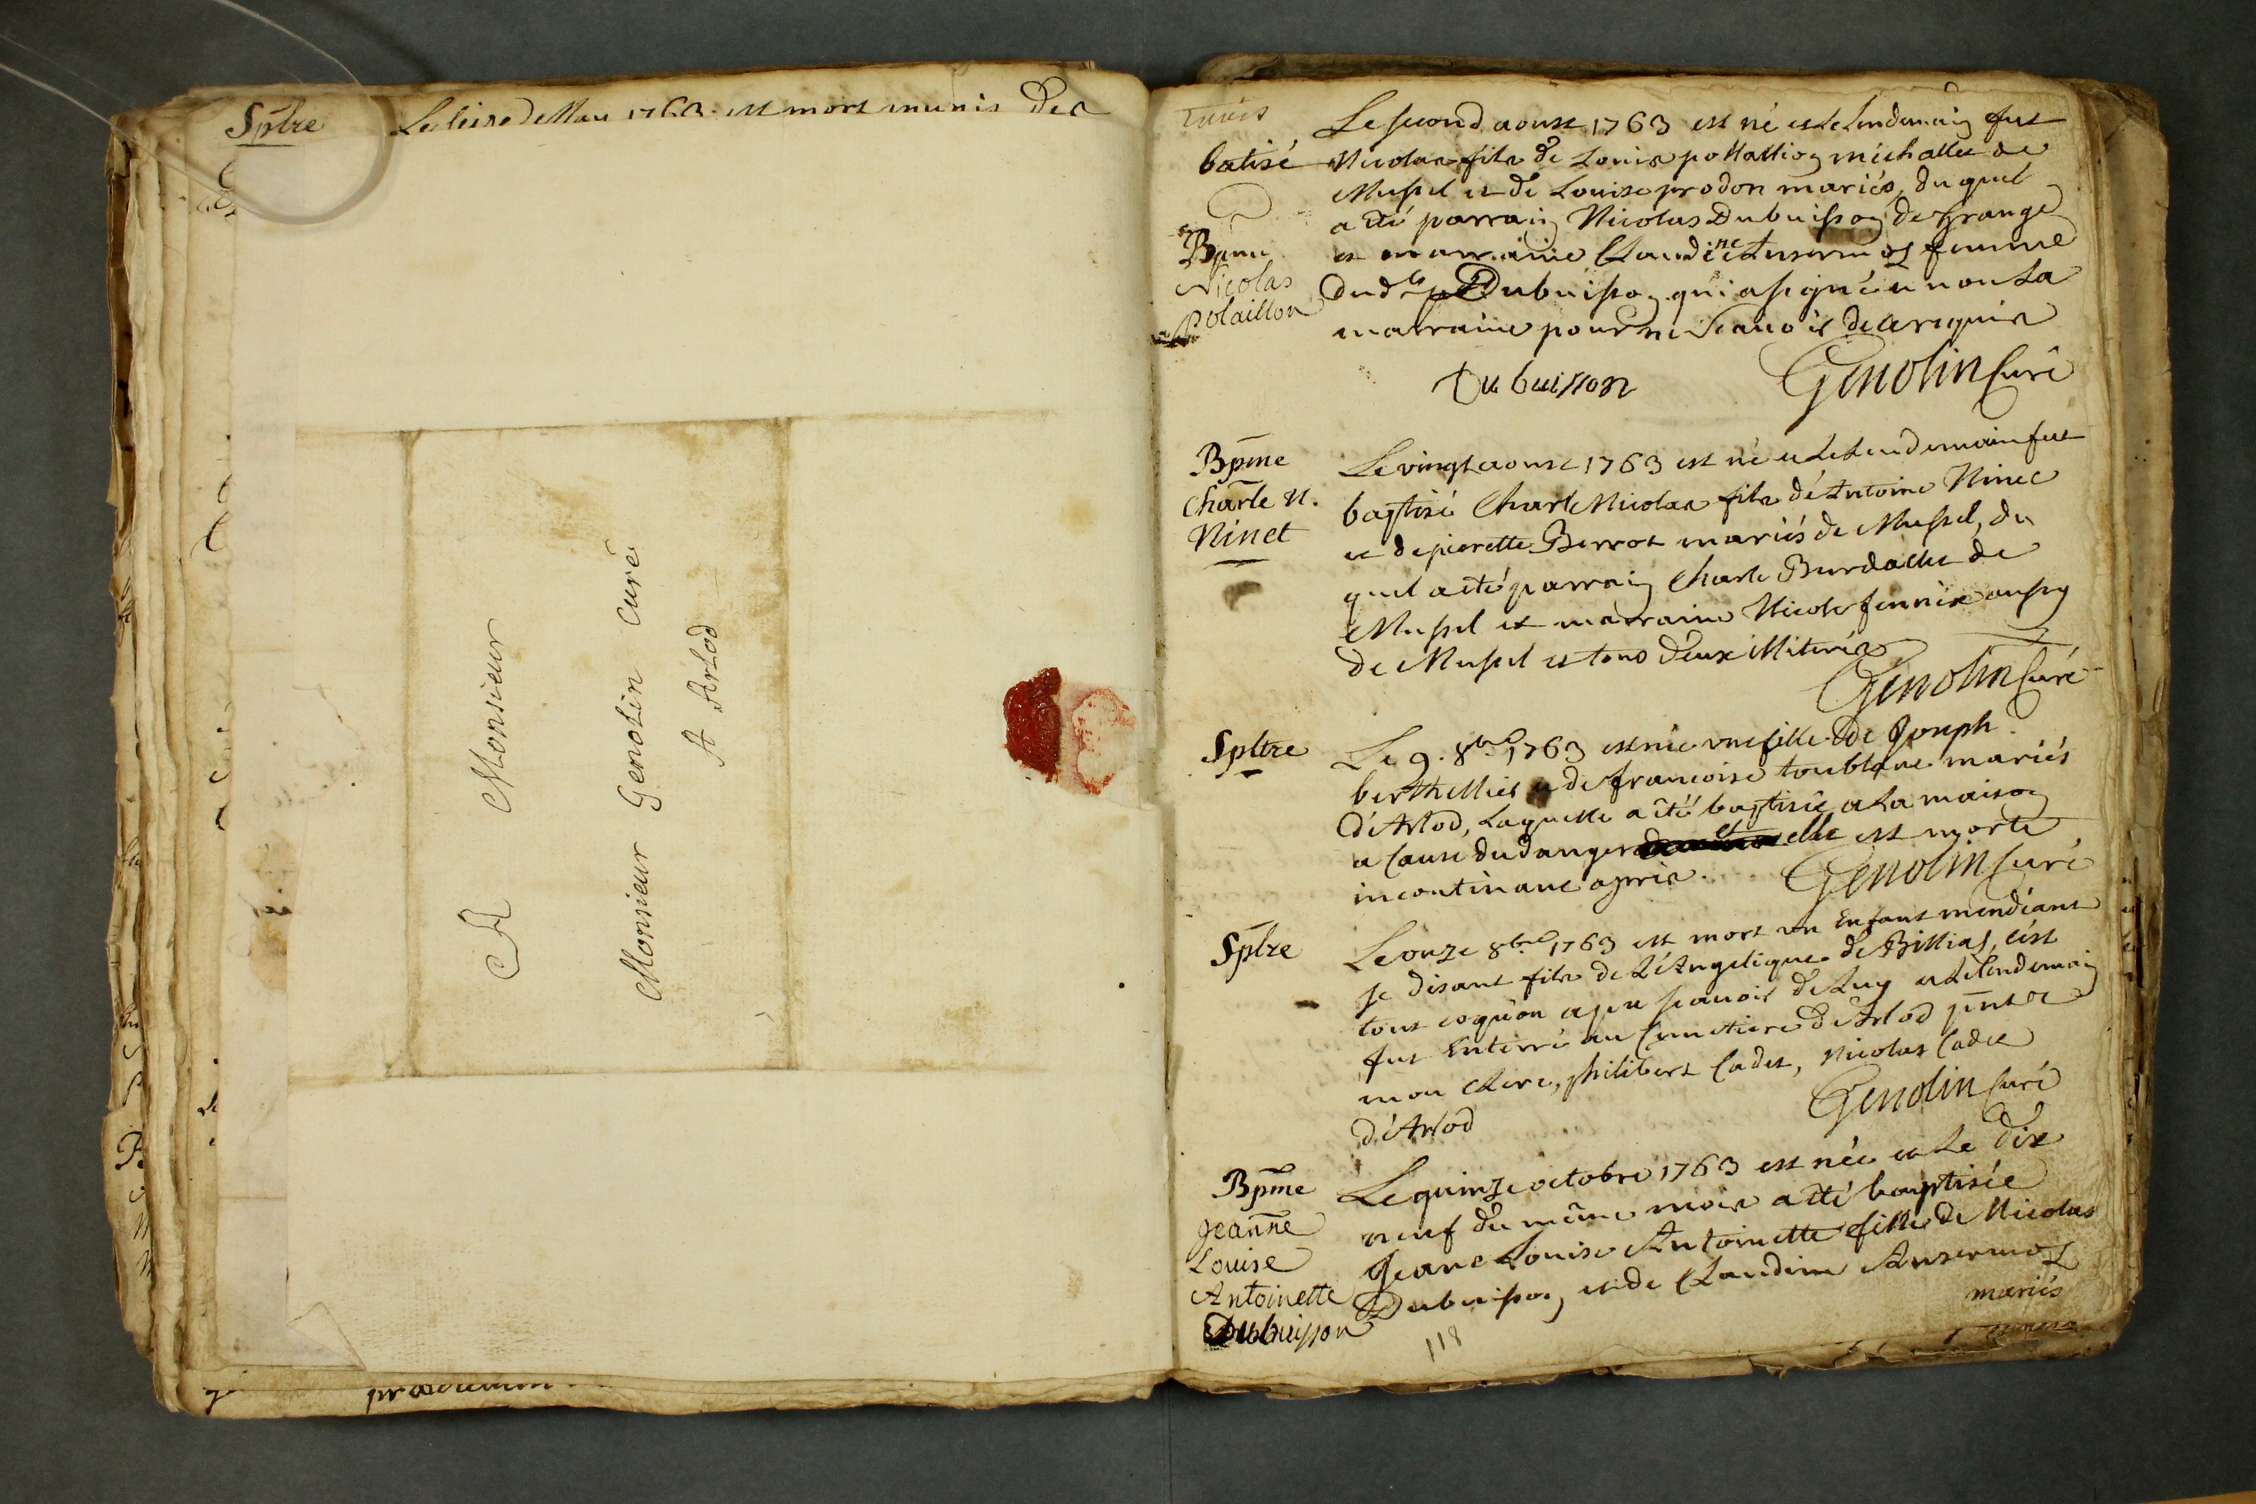 Spltre
Le seize de May 1763 est mort munis des
A Monsieur
Monsieur Genolin curé
A Arlod
Le second aoust 1763 est né et le lendemain fut
batisé Nicolas fils de Louis pollallion michallet de
Mussel et de Louise prodon mariés, du quel
a été parrain Nicolas Dubuisson de Grange
et marraine Claudine Ansermoz femme
dud. Dubuisson qui a signé et non la
marraine pour ne scavoir de ce requis
Bpme
Nicolas
Polaillon
Dubuisson
Genolin Curé
Bpme
Charle N.
Ninet
Le vingt aoust 1763 est né et le lendemain fut
baptisé Charle Nicolas fils d'Antoine Ninet
et de pierette Berrot mariés de Mussel, du
quel a été parrain Charle Burdallet de
Mussel et marraine Nicole fennix aussy
de Mussel et tous deux illiterés
Genolin Curé
Spltre
Le 9. 8bre 1763 est née une fille de Joseph
berthellier et de francoise toublanc mariés
d'Arlod, laquelle a été baptisée a la maison
a cause du danger et elle est morte
incontinant apres.
Genolin Curé
Spltre
Le onze 8bre 1763 est mort un Enfant mendiant
se disant fils de L'Angelique de Billias, c'est
tout ce qu'on a pu scavoir de luy et le lendemain
fut Enterré au Cimetiere d'Arlod pnts
mon Clerc, philibert Cadet, Nicolas Cadet
d'Arlod
Genolin Curé
Bpme
Jeanne
Louise
Antoinette
Dubuisson
Le quinze octobre 1763 est née et le dix
neuf du même mois a été baptisée
Jeane Louise Antoinette fille de Nicolas
Dubuisson et de Claudine Ansermoz
mariés
118